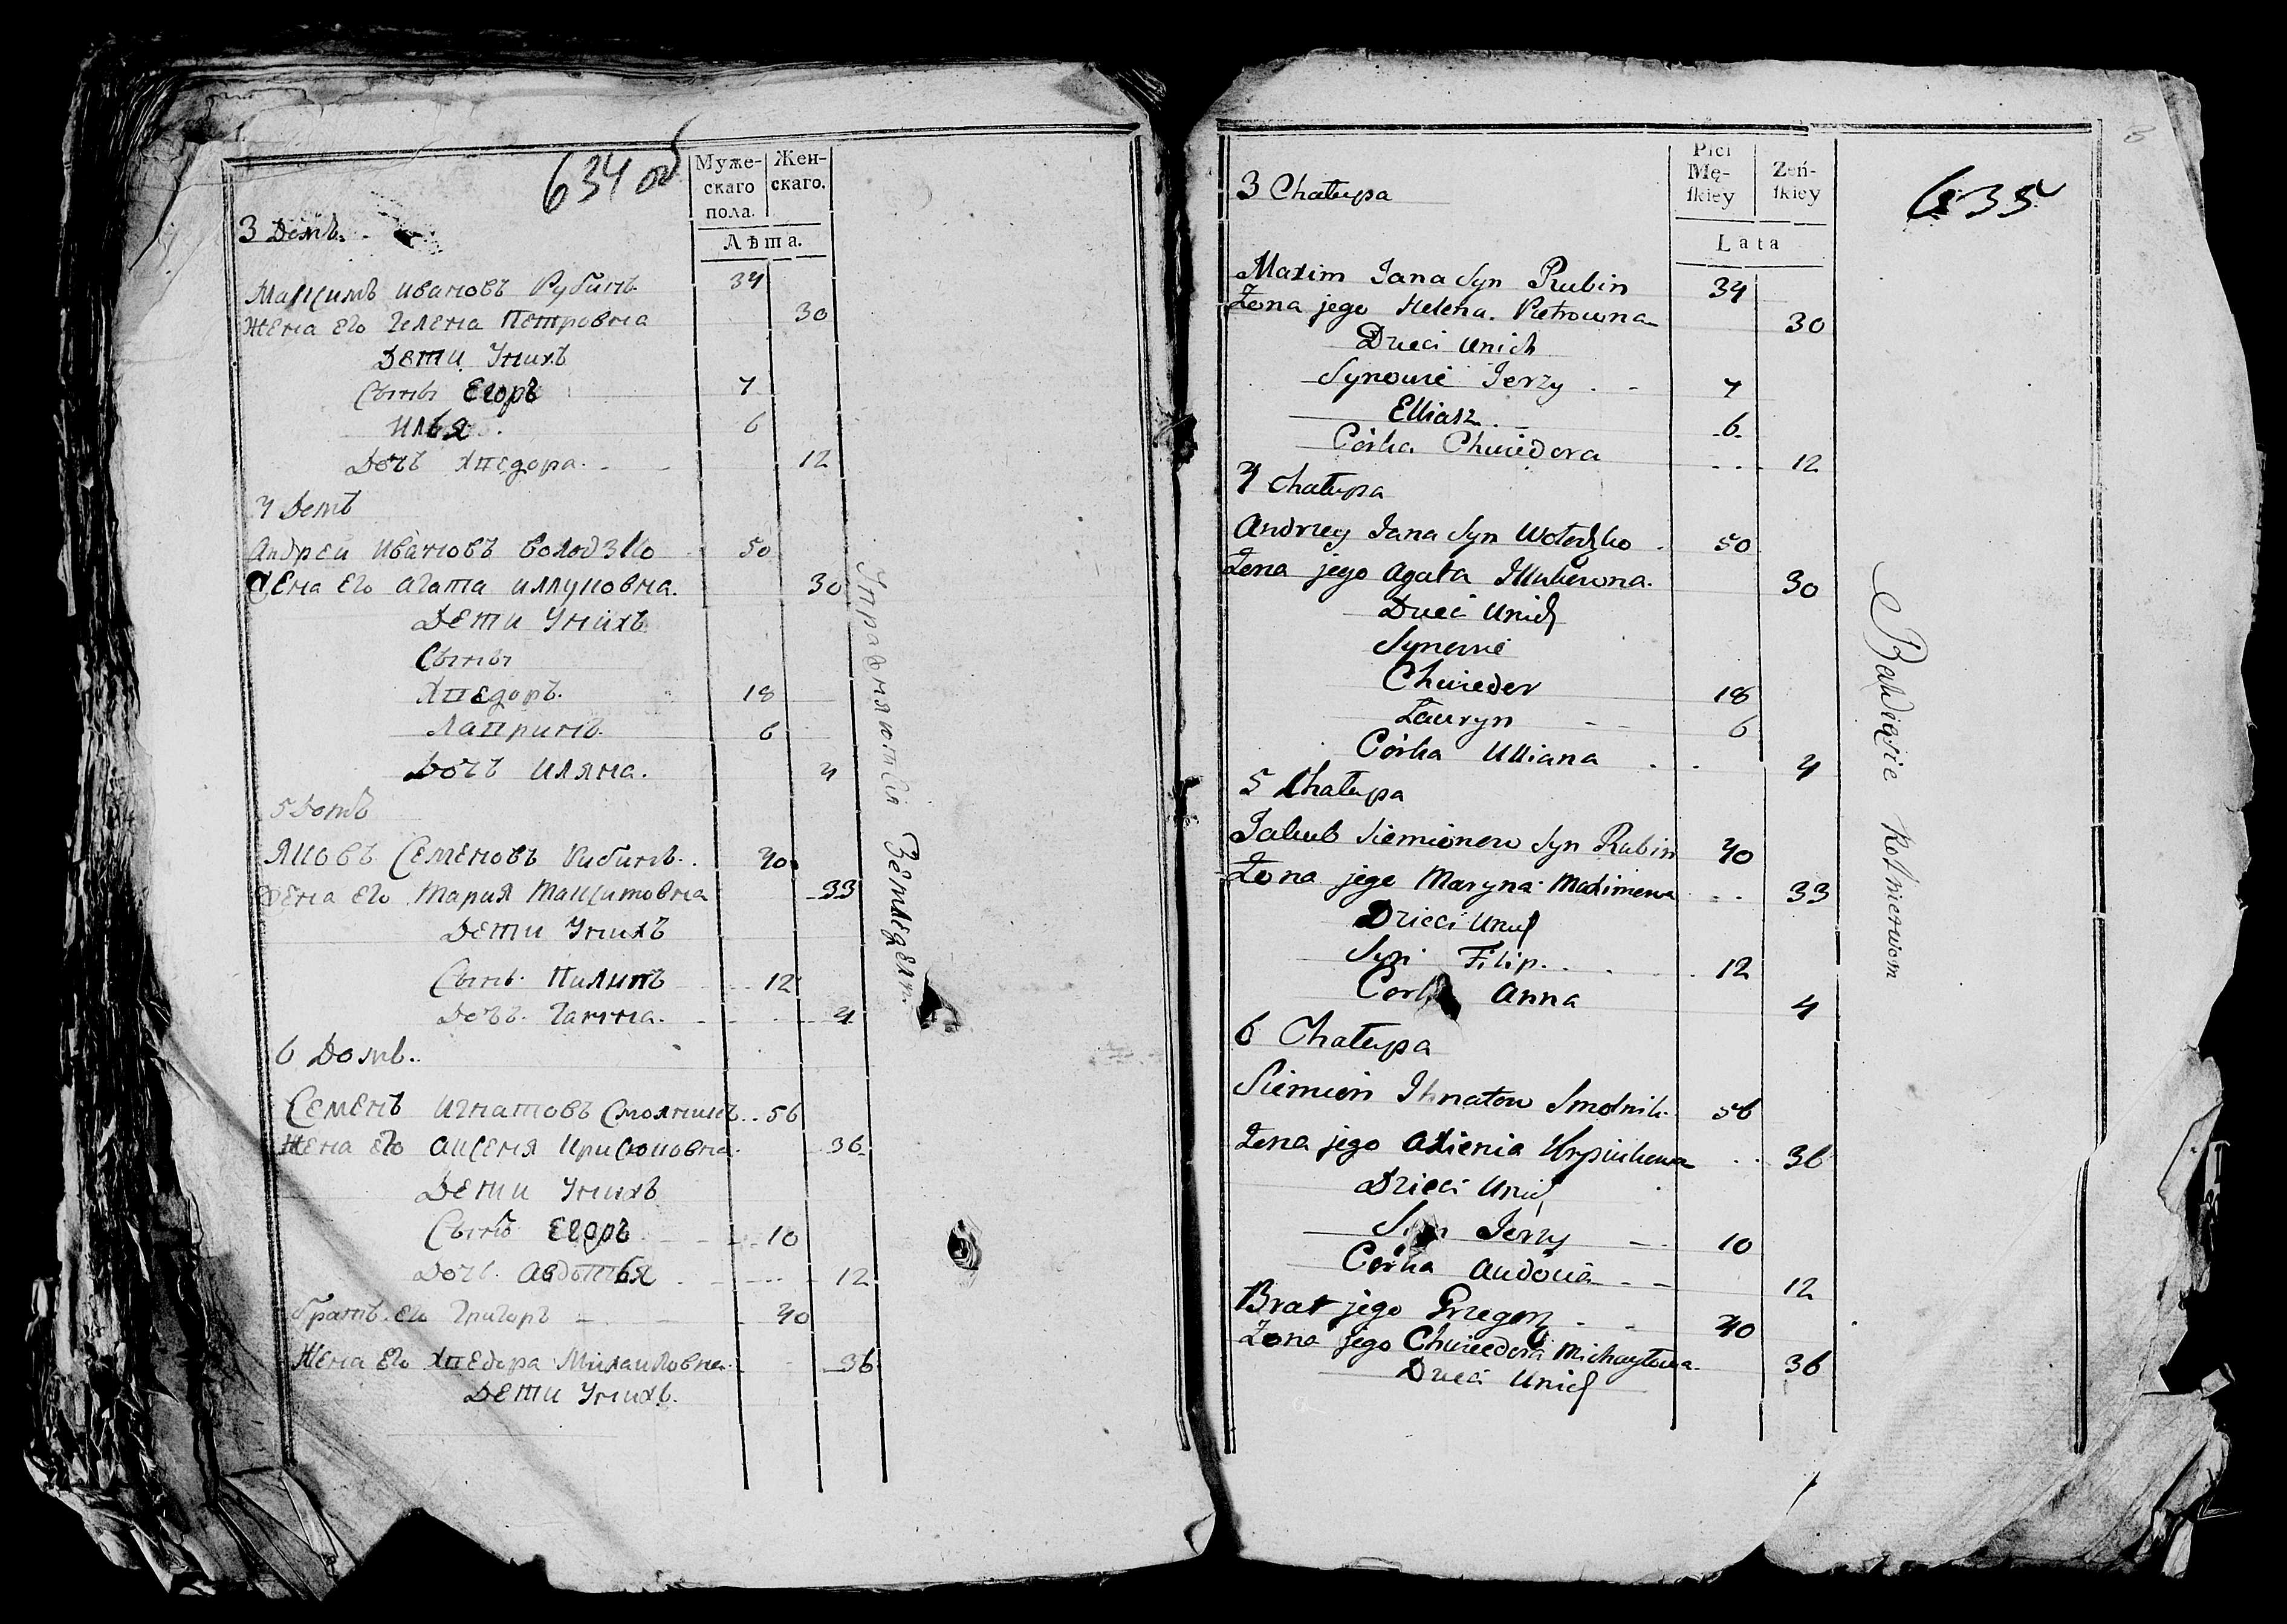 634 об
Муже-
скаго
пола.
Жен-
скаго.
Лѣта.
3 Домъ.
Максимъ Ивановъ Рубинъ 34
Жена Его Гелена Петровна 30
Дети Унихъ
Сыны Егоръ 7
Илья 6
Дочъ Хведора 12
4 Домъ
Андреи Ивановъ Володзко 50
Жена Его Агата Иллуковна. 30
Дети Унихъ
Сыны
Хведоръ. 18
Лавринъ. 6
Дочъ Иляна. 4
5 Домъ
Яковъ Семеновъ Рубинъ. 40
Жена Его Мария Максимовна 33
Дети Унихъ
Сынъ Пилипъ 12
Дочъ Ганна. 4
6 Домъ.
Семенъ Игнатовъ Смолникъ 56
Жена Его Аксеня 36
Дети Унихъ
Сынъ Егоръ 10
Дочъ Авдотья 12
братъ Его Григоръ 40
Жена Его Хведора Михайловна 36
Дети Унихъ.
Упражняются Земледел.
635
Płci
Mę-
skiey
Żeń-
skiey
Lata
3 Chałupa
Maxim Jana Syn Rubin 34
Żona jego Helena Pietrowna 30
Dzieci Unich
Synowie Jerzy 7
Elliasz 6
Córka Chwiedora 12
4 Chałupa
Andrzey Jana Syn Wołodzko 50
Żona jego Agata Illukowna. 30
Dzieci Unich
Synowie
Chwiedor 18
Łauryn 6
Córka Ulliana 4
5 Chałupa
Jakub Siemionow Syn Rubin 40
Żona jego Maryna Maximowa 33
Dzieci Unich
Syn Filip. 12
Corka Anna 4
6 Chałupa
Siemion Ihnatow Smolnik 56
Żona jego Axienia 36
Dzieci Unich
Syn Jerzy 10
Córka Audocia 12
Brat jego Grzegorz 40
Żona jego Chwiedora Michayłowa 36
Dzieci Unich
Bawiąsie Rolnictwom